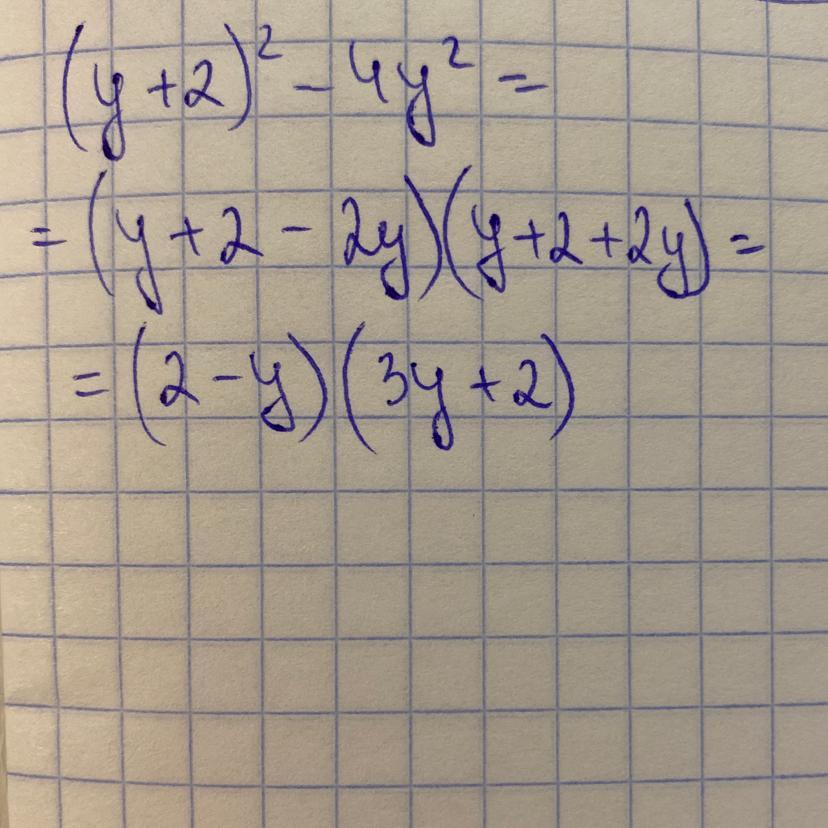 (y+2)² - 4y² =
= (y+2 - 2y)(y+2+2y) =
= (2 - y)(3y+2)